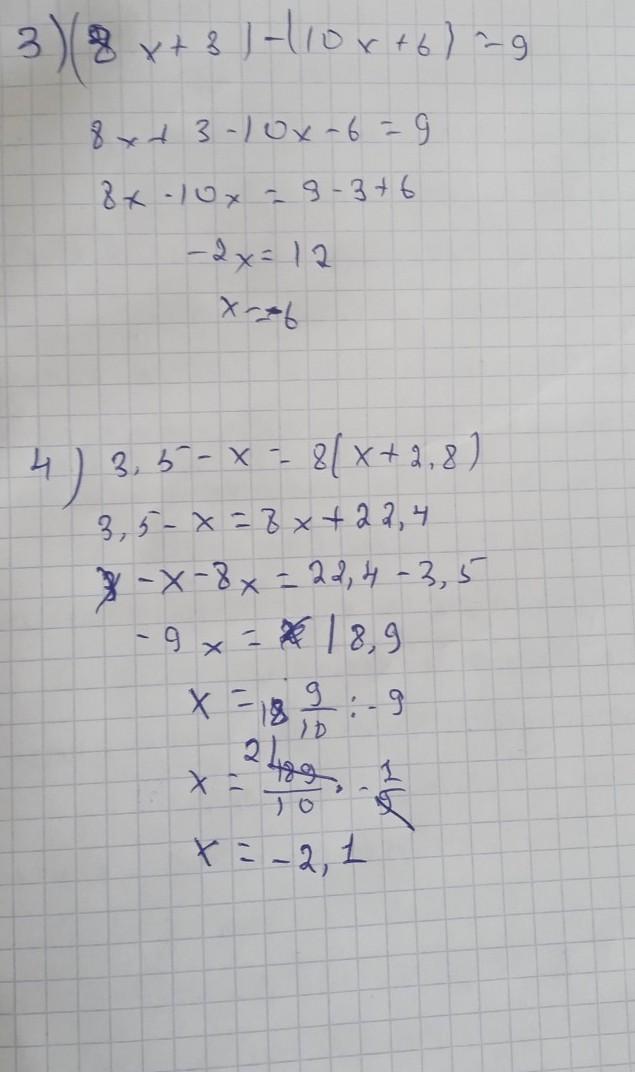 3) (8x + 3) - (10x + 6) = 9
8x + 3 - 10x - 6 = 9
8x - 10x = 9 - 3 + 6
-2x = 12
x = -6
4) 3,5 - x = 8(x + 2,8)
3,5 - x = 8x + 22,4
-x - 8x = 22,4 - 3,5
-9x = 18,9
x = 18 9/10 : -9
x = 21 189/10 · -1/9
x = -2,1